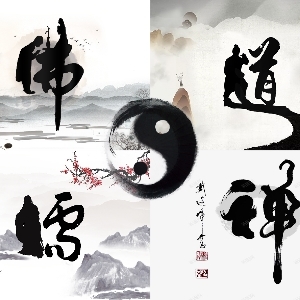 佛
道
儒
禅